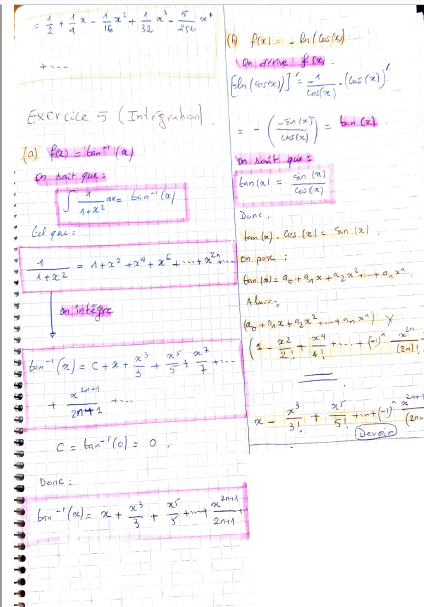 = 1/2 + 1/4 x - 1/16 x² + 1/32 x³ - 5/256 x⁴
+ ....
Exercice 5 (Intégration).
(a) f(x) = tan⁻¹(x)
on sait que:
∫ 1/(1+x²) dx = tan⁻¹(x)
tel que:
1/(1+x²) = 1+x²+x⁴+x⁶+...+x²ⁿ...
on intègre
tan⁻¹(x) = C + x + x³/3 + x⁵/5 + x⁷/7 + ...
+ x²ⁿ⁺¹/(2n+1) + ...
C = tan⁻¹(0) = 0.
Donc:
tan⁻¹(x) = x + x³/3 + x⁵/5 + ...+ x²ⁿ⁺¹/(2n+1) +
(b) f(x) = - ln(cos(x))
on dérive f(x).
[-ln(cos(x))]' = -1/cos(x) . (cos(x))'
= - (-sin(x)/cos(x)) = tan(x)
on sait que:
tan(x) = sin(x)/cos(x)
Donc,
tan(x) . cos(x) = sin(x).
on pose:
tan(x) = a₀ + a₁x + a₂x² + ... + aₙxⁿ
Alors:
(a₀ + a₁x + a₂x² + ... + aₙxⁿ) ×
(1 - x²/2! + x⁴/4! + ... + (-1)ⁿ x²ⁿ/(2n)!
x - x³/3! + x⁵/5! + ... + (-1)ⁿ x²ⁿ⁺¹/(2n+
(Devoir)